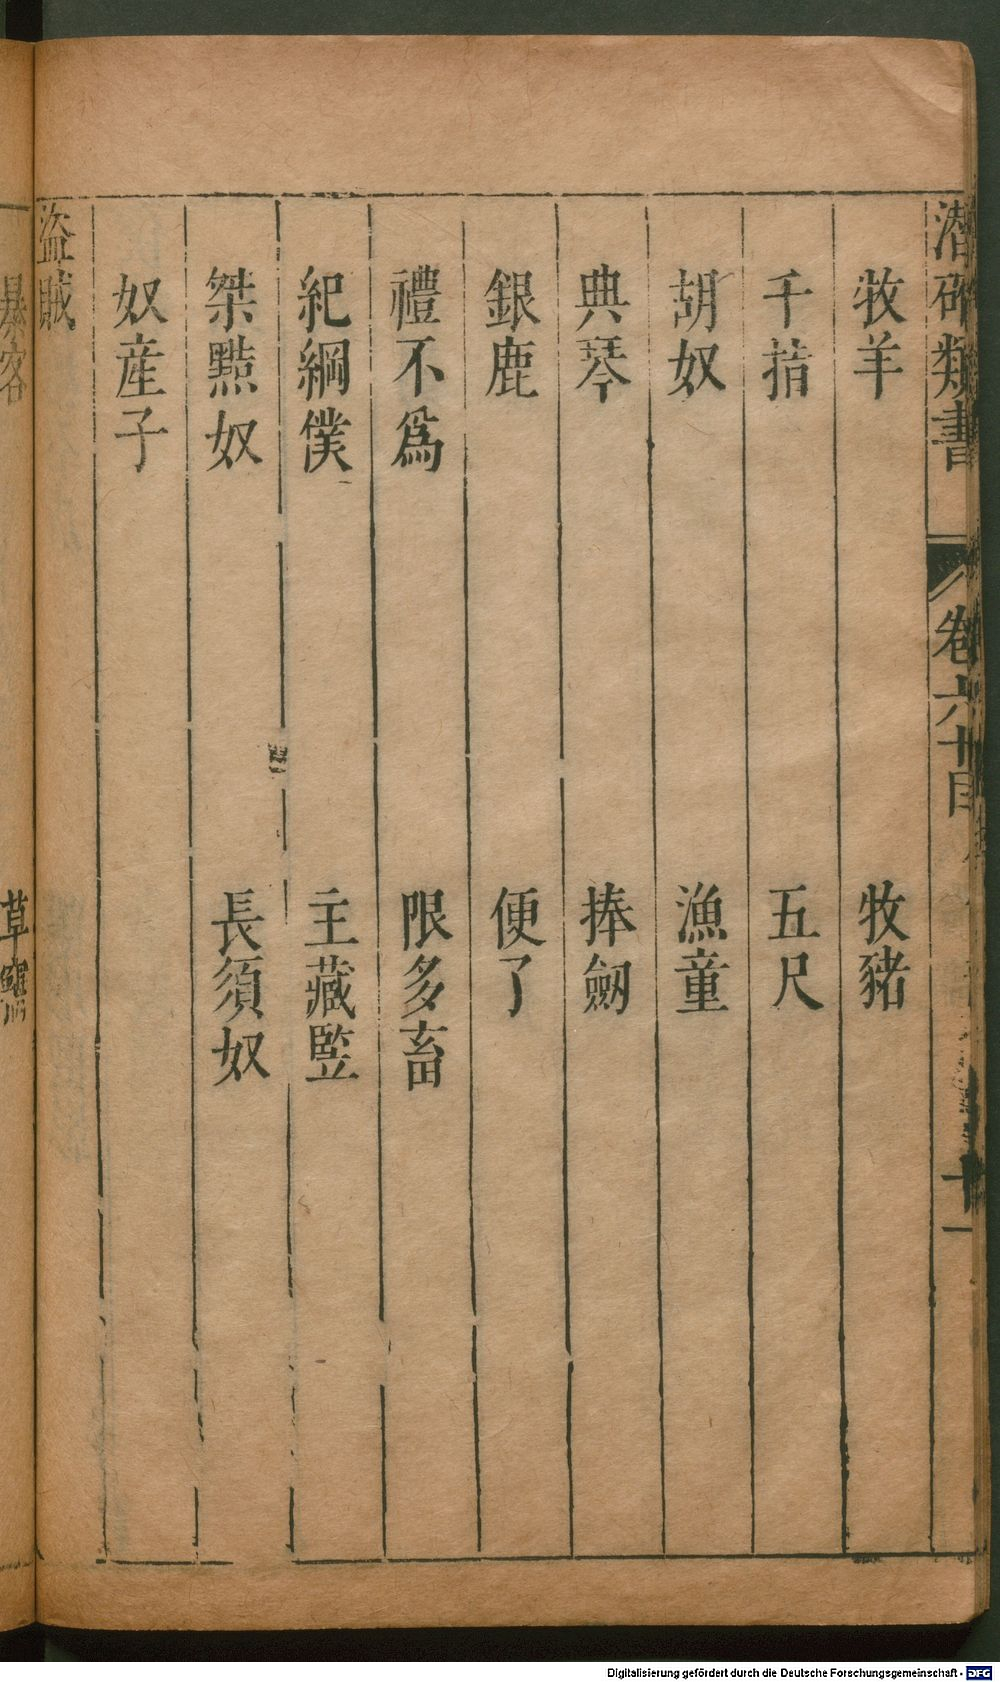 潛確類書 卷六十目 十一
牧羊 牧豬
千指 五尺
胡奴 漁童
典琴 捧劒
銀鹿 便了
禮不爲 限多畜
紀綱僕 主藏監
桀黠奴 長須奴
奴產子
盜賊
暴客 草竊
Digitalisierung gefördert durch die Deutsche Forschungsgemeinschaft - DFG